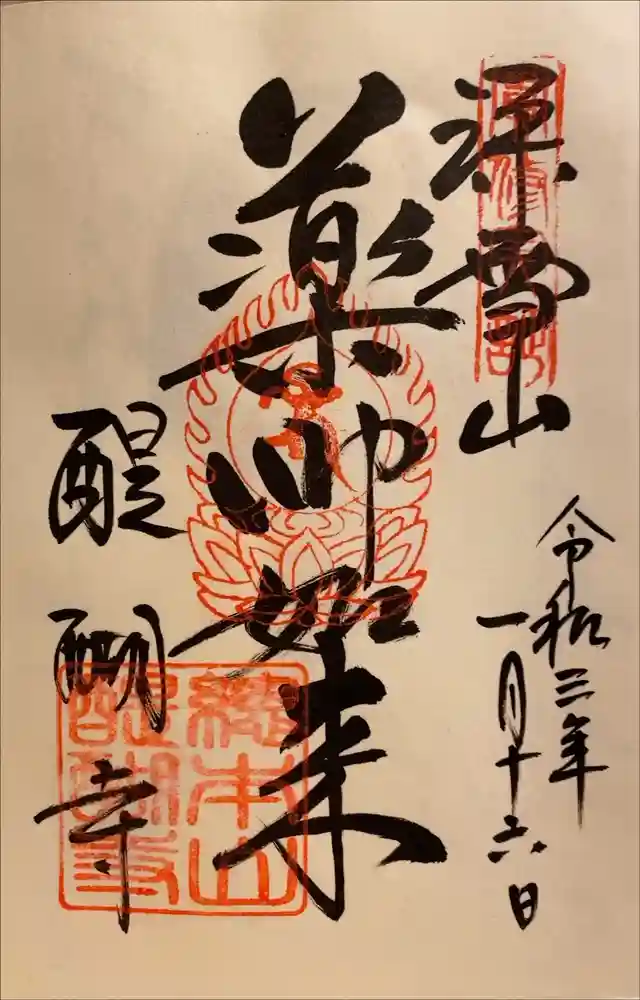 深雪山
令和三年
一月十六日
薬師如来
醍醐寺
總本山
醍醐寺